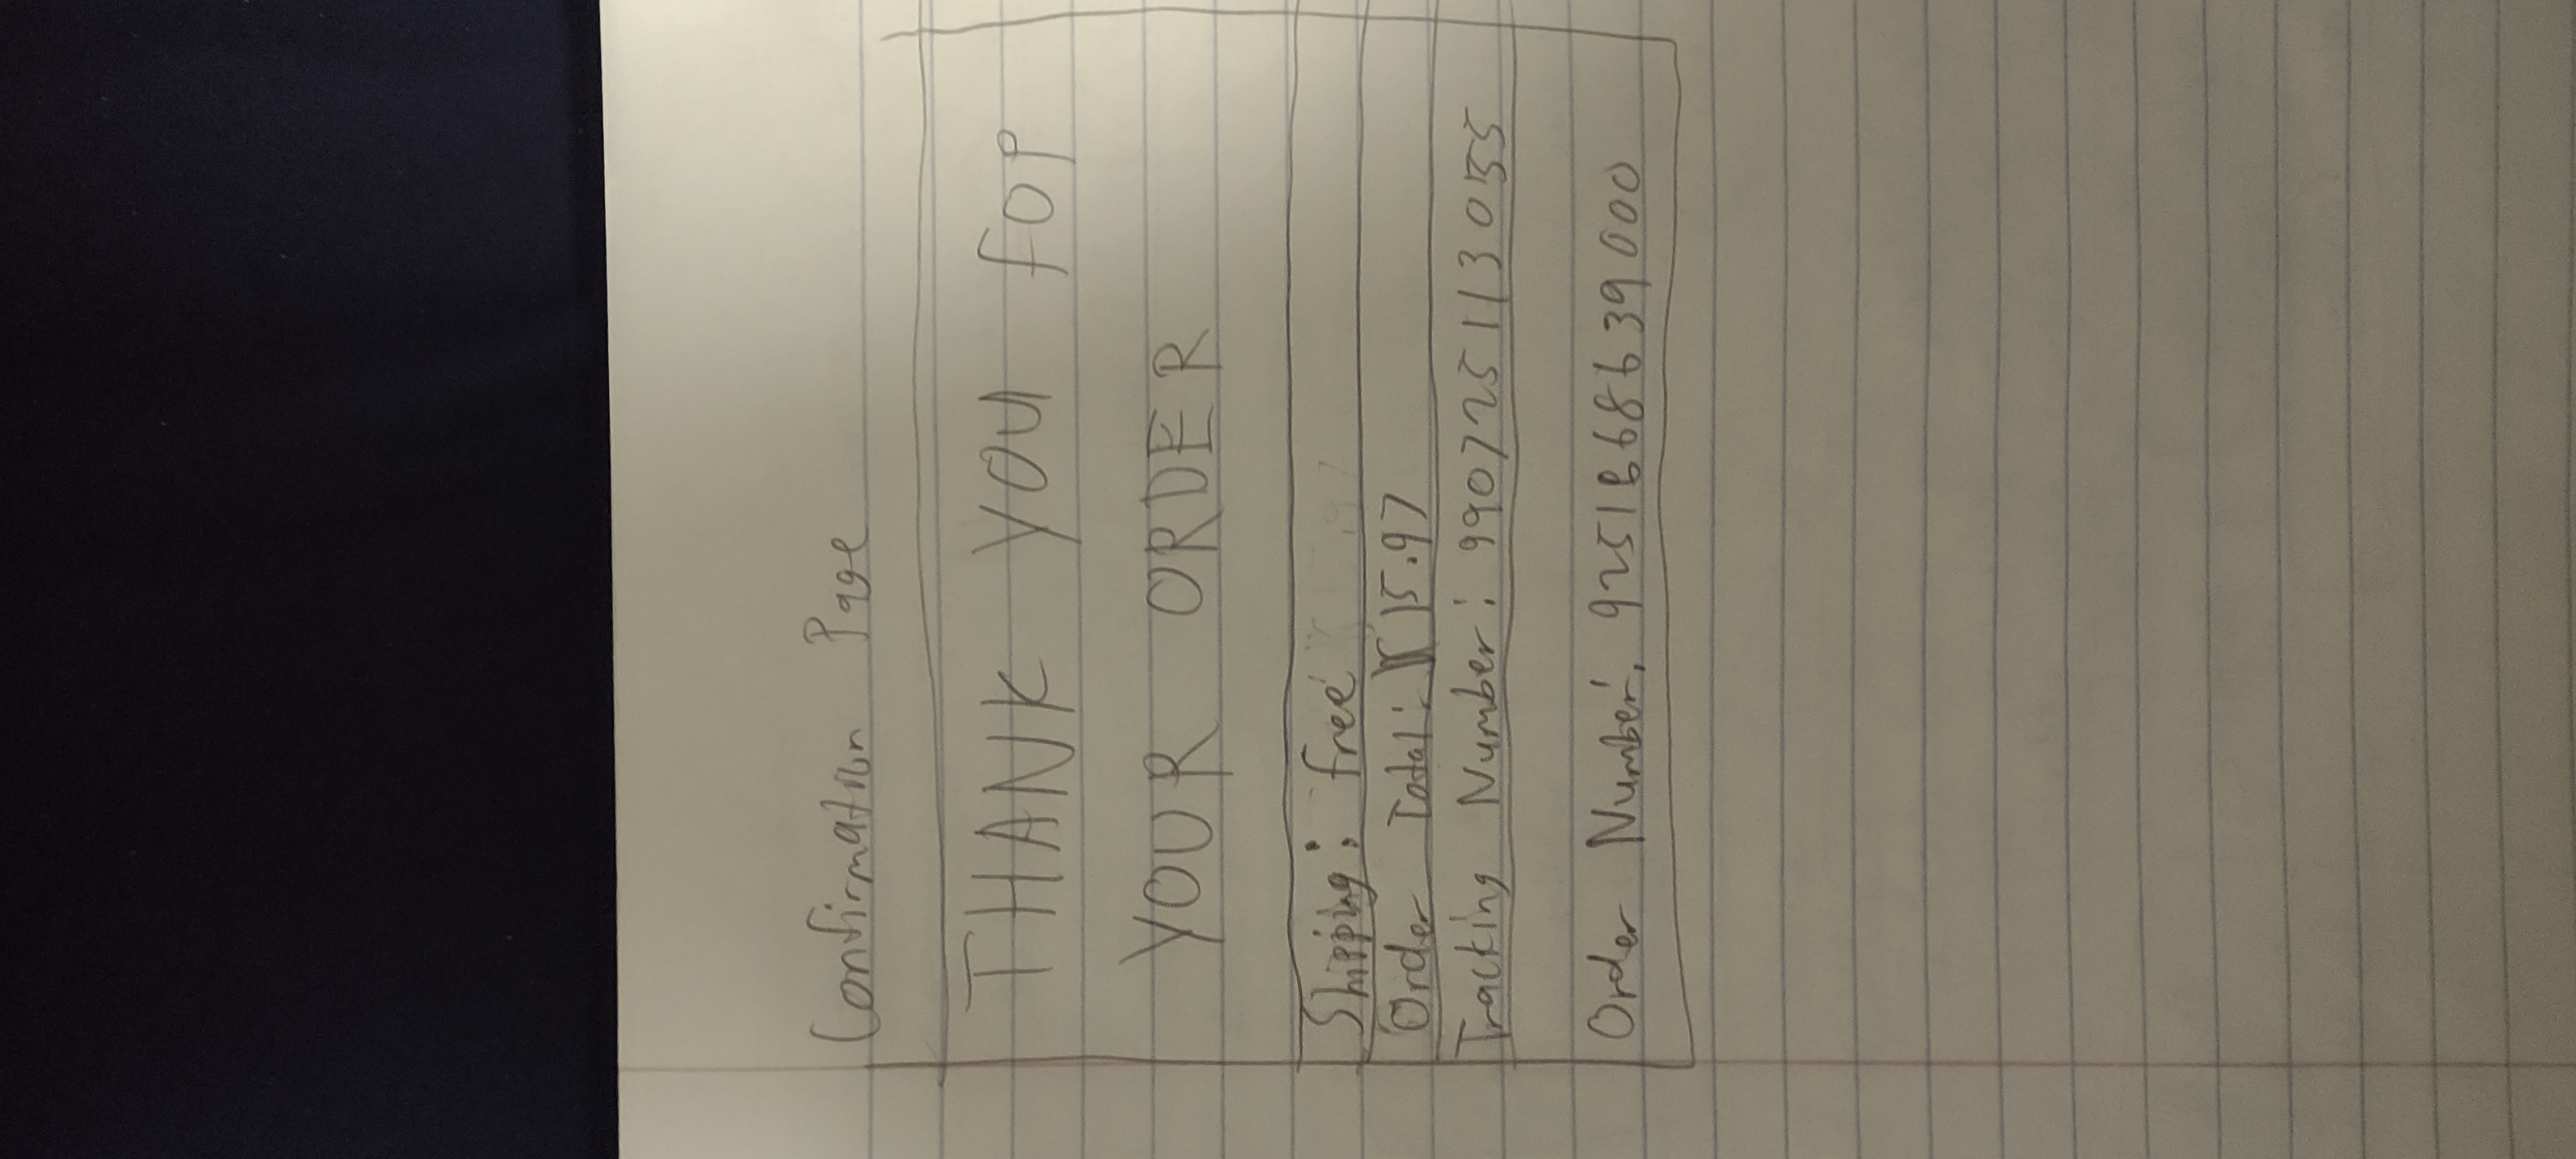 Confirmation Page
THANK YOU FOR
YOUR ORDER
Shipping: free
Order Total: $15.97
Tracking Number: 990725113055
Order Number: 9251668639000